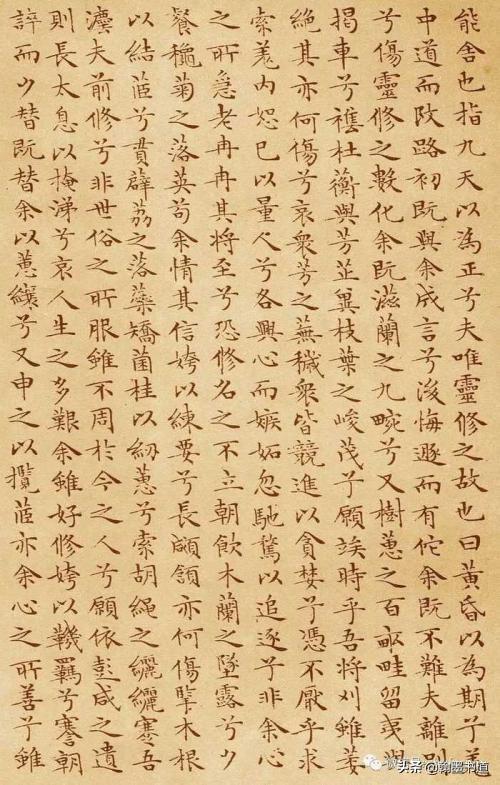 能舍也指九天以為正兮夫唯靈修之故也曰黃昏以為期兮羌
中道而改路初既與余成言兮後悔遯而有佗余既不難夫離別
兮傷靈修之數化余既滋蘭之九畹兮又樹蕙之百畝畦留夷與
揭車兮襍杜蘅與芳芷冀枝葉之峻茂兮願竢時乎吾將刈雖萎
絕其亦何傷兮哀衆芳之蕪穢衆皆競進以貪婪兮憑不厭乎求
索羌內恕己以量人兮各興心而嫉妬忽馳騖以追逐兮非余心
之所急老冉冉其將至兮恐修名之不立朝飲木蘭之墜露兮夕
餐穐菊之落英苟余情其信姱以練要兮長顑頷亦何傷擥木根
以結茝兮貫薜荔之落蘂矯菌桂以紉蕙兮索胡繩之纚纚謇吾
灋夫前修兮非世俗之所服雖不周於今之人兮願依彭咸之遺
則長太息以掩涕兮哀人生之多艱余雖好修姱以鞿羈兮謇朝
誶而夕替既替余以蕙纕兮又申之以攬茝亦余心之所善兮雖
头条 @翰墨书道